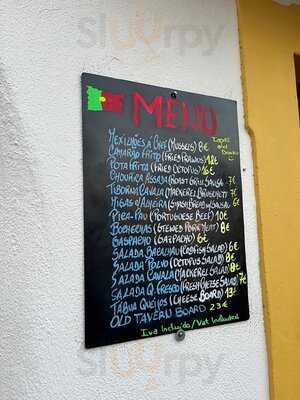 MENU
Tapas and Drinks
Mexilhões à Chef (Mussels) 8€
Camarão Frito (Fried Prawns) 12€
Pota Frita (Fried Octopus) 16€
Chouriça Assada (Roast Grill Sausa 7€
Tiborna Cavala (Mackerel 7€
Migas d'Almeira (Smash Bread w/Sausa) 6€
Pica-Pau (Portuguese Beef) 10€
Bochechas (Stewed Pork Meat) 8€
Gaspacho (Gazpacho) 6€
Salada Bacalhau (Codfish Salad) 6€
Salada Polvo (Octopus Salad) 8€
Salada Cavala (Mackerel Salad) 8€
Salada Q. Fresco (Fresh Cheese Salad) 7€
Tábua Queijos (Cheese Board) 13€
Old Tavern Board 23€
Iva Incluído / Vat Included
Sluurpy